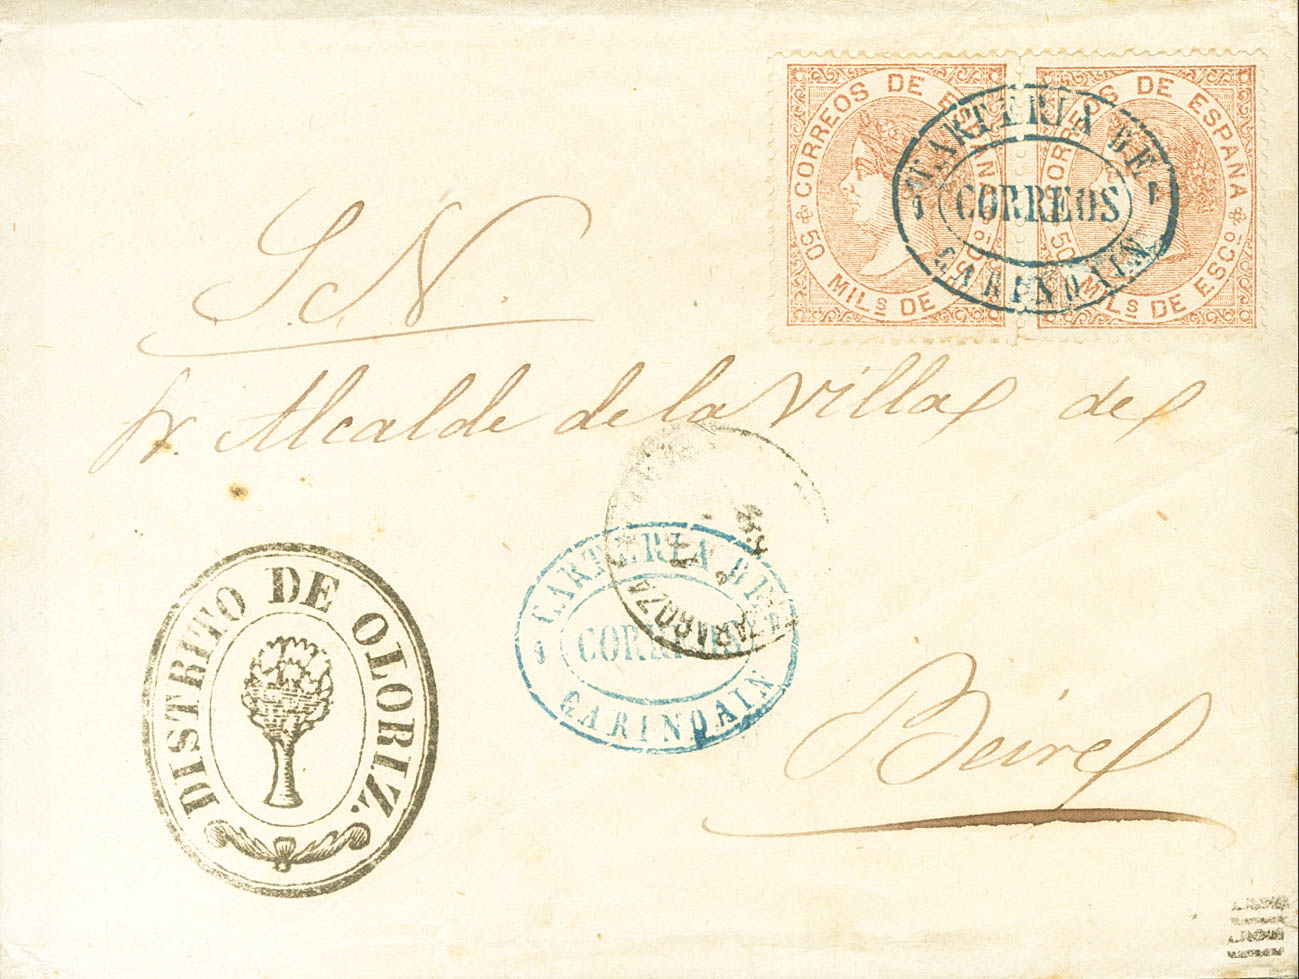 CORREOS DE ESPAÑA
50 MILS DE ESCO
CORREOS DE ESPANA
50 MILS DE ESCO
CARTERIA DE
CORREOS
GARINOAIN
S. N.
Sr. Alcalde de la Villa de
Beire
CARTERIA DE
CORREOS
GARINOAIN
ZARAGOZA
DISTRITO DE OLORIZ.